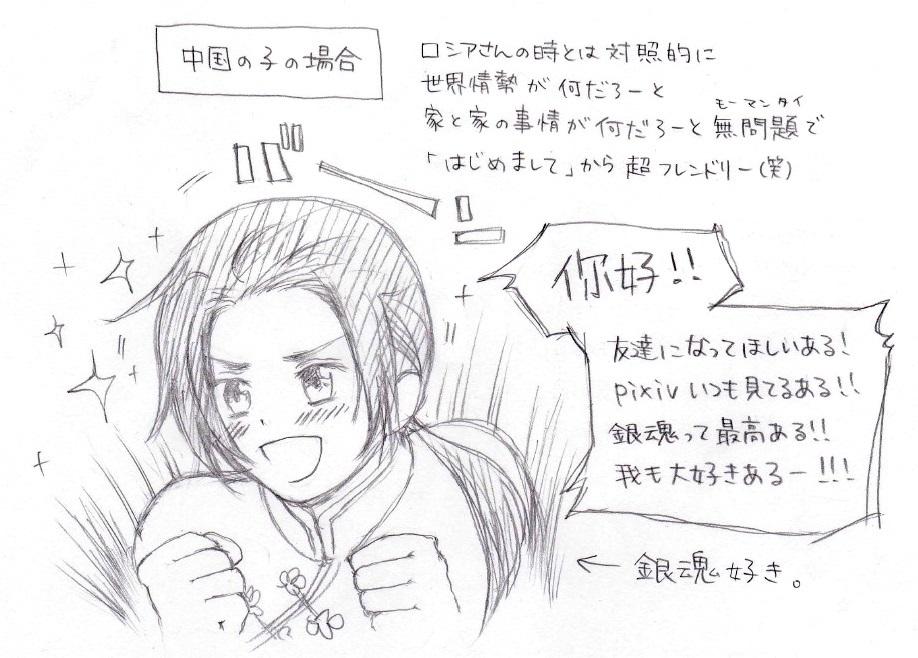 中国の子の場合
ロシアさんの時とは対照的に
世界情勢が何だろーと
モーマンタイ
家と家の事情が何だろーと無問題で
「はじめまして」から超フレンドリー(笑)
你好!!
友達になってほしいある!
pixivいつも見てるある!!
銀魂って最高ある!!
我も大好きあるー!!!
← 銀魂好き。